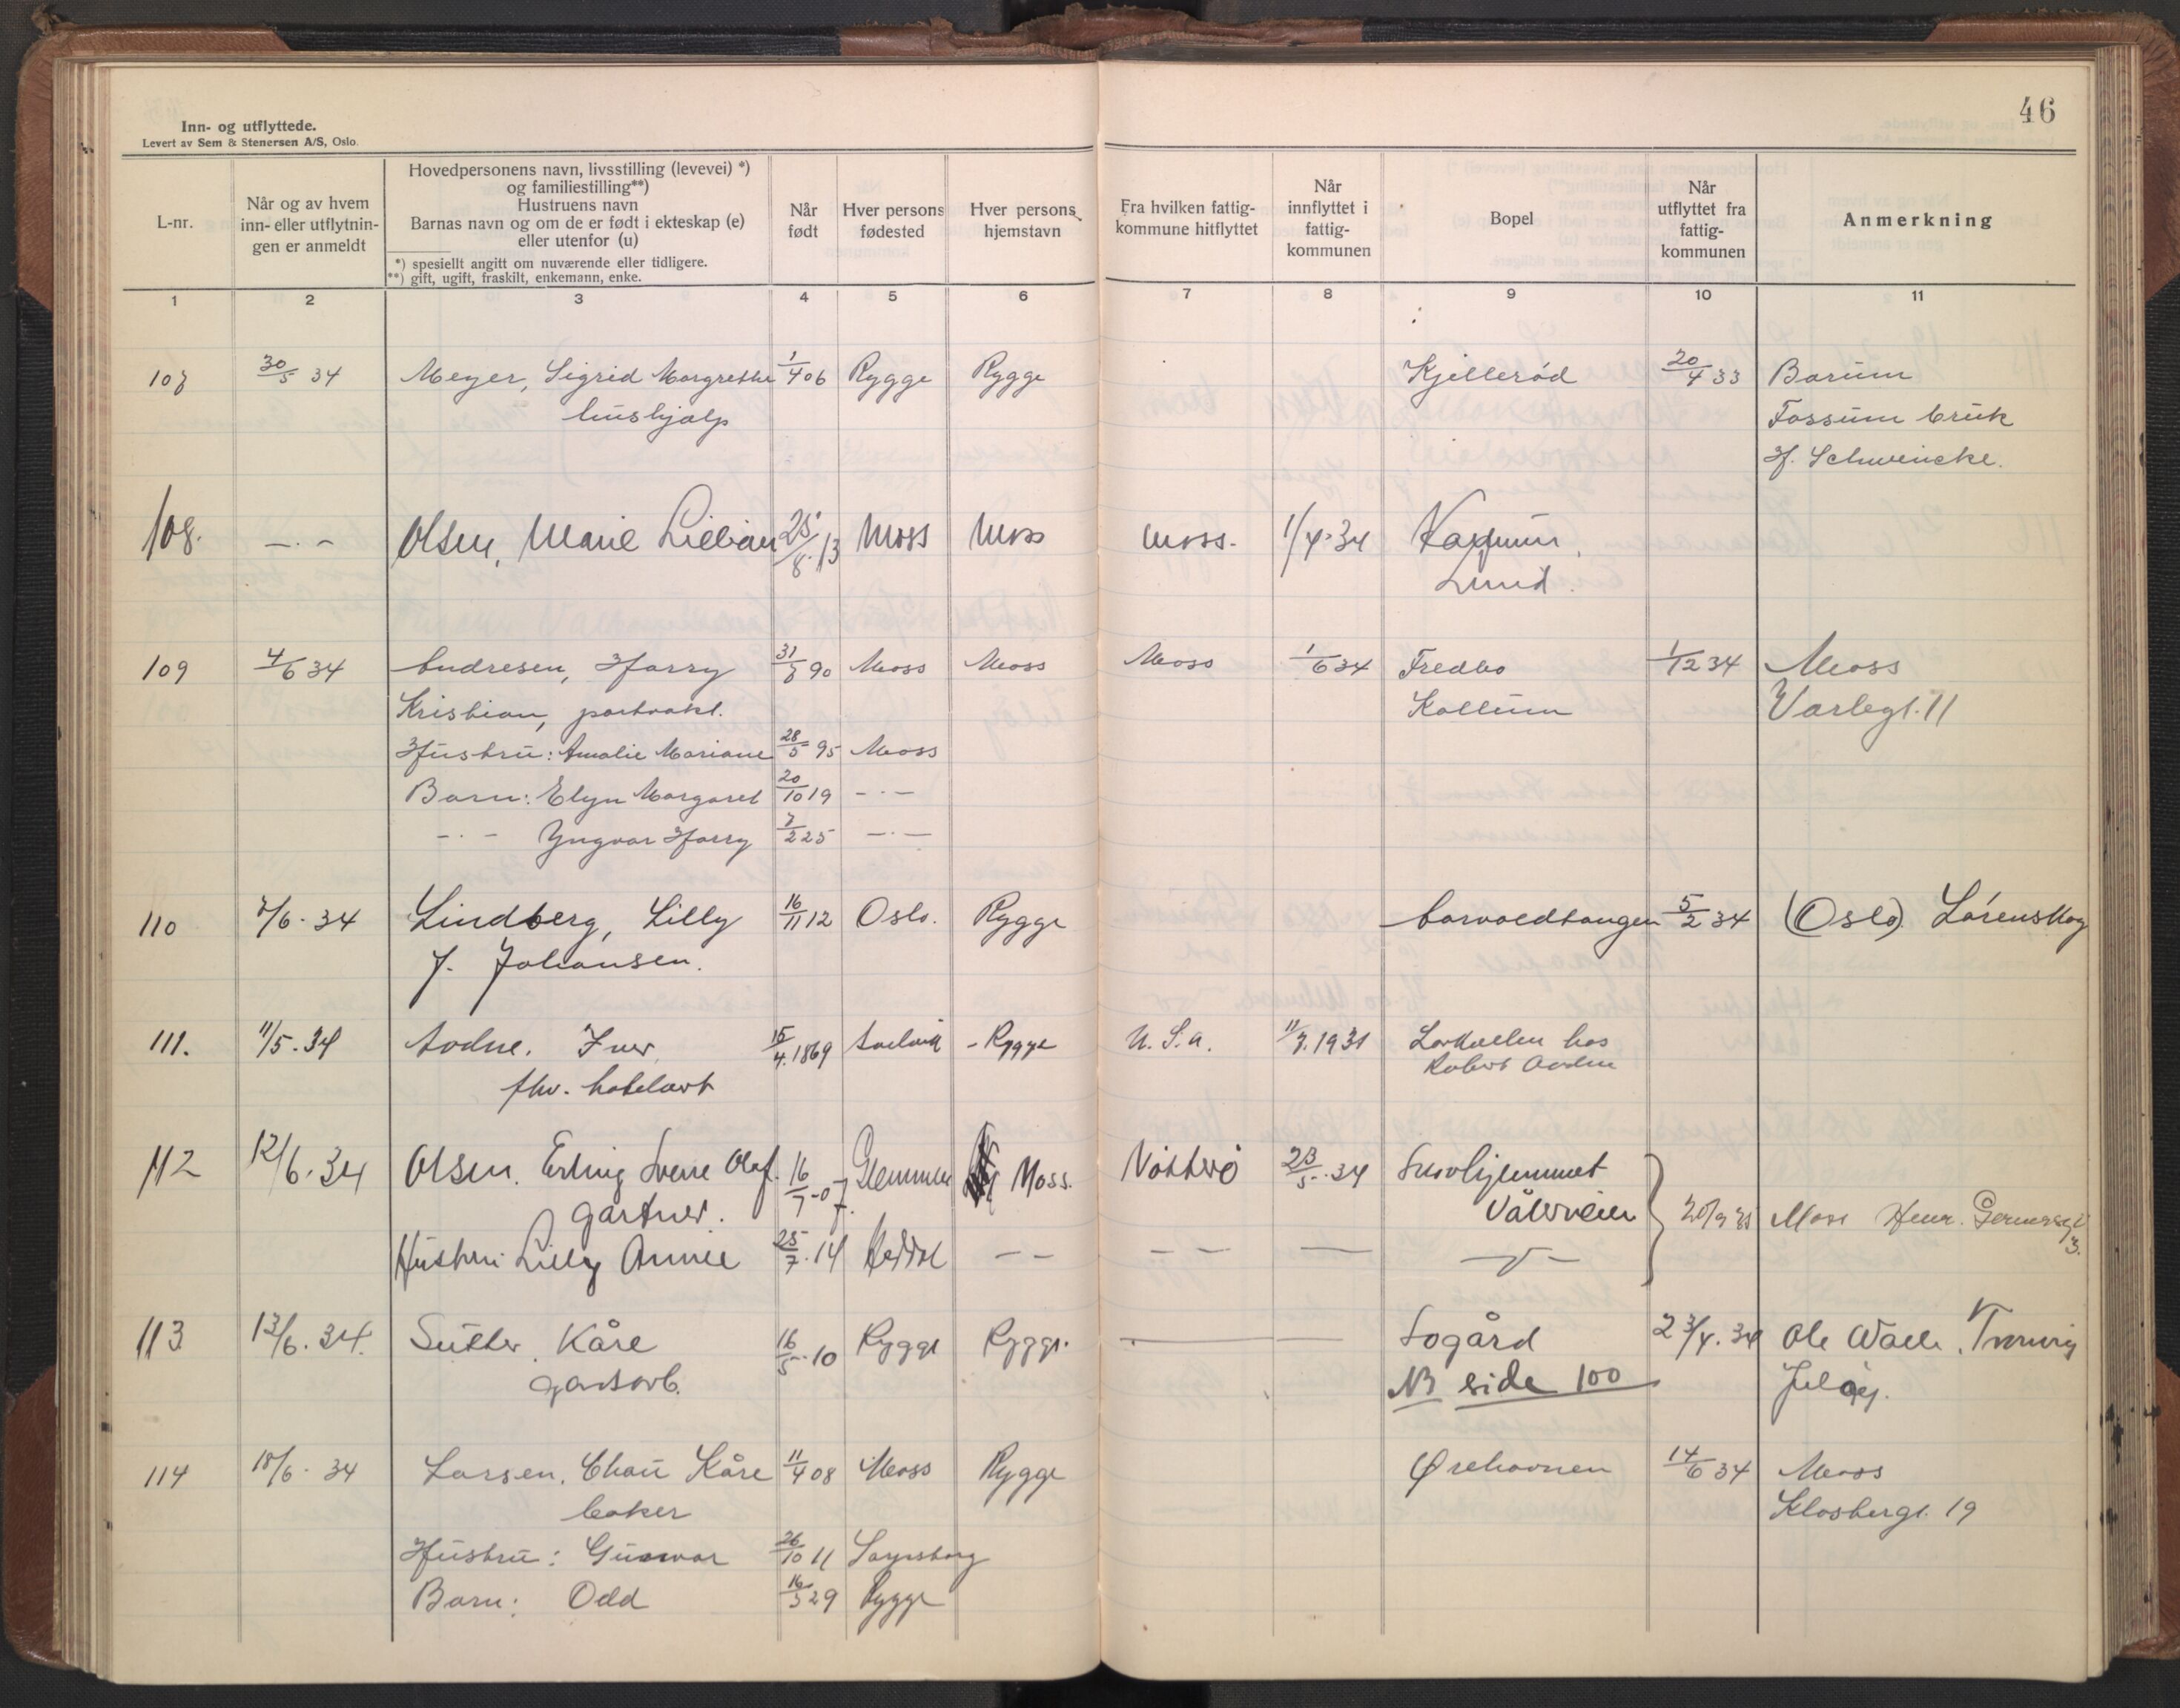 46
Inn- og utflyttede.
Levert av Sem & Stenersen A/S, Oslo.
L-nr.
Når og av hvem
inn- eller utflytnin-
gen er anmeldt
Hovedpersonens navn, livsstilling (levevei) *)
og familiestilling**)
Hustruens navn
Barnas navn og om de er født i ekteskap (e)
eller utenfor (u)
*) spesielt angitt om nuværende eller tidligere.
**) gift, ugift, fraskilt, enkemann, enke.
Når
født
Hver persons
fødested
Hver persons
hjemstavn
Fra hvilken fattig-
kommune hitflyttet
Når
innflyttet i
fattig-
kommunen
Bopel
Når
utflyttet fra
fattig-
kommunen
Anmerkning
1 2 3 4 5 6 7 8 9 10 11
107 30/5 34 Meyer, Sigrid Margrethe 1/4 06 Rygge Rygge Kjellerød 20/4 33 Bærum
hushjelp Fossum bruk
H. Schwencke.
108. —.— Olsen, Marie Lilian 25/8.13 Moss Moss Moss. 1/4.34
Lund.
109 4/6 34 Andresen, Harry 31/8 90 Moss Moss Moss 1/6 34 Fredbo 1/12 34 Moss
Kristian, portvakt. Kallum Varlegt. 11
Hustru: Amalie Mariane 28/5 95 Moss
Barn: Elyn Margaret 20/10 19 —.—
—.— Yngvar Harry 7/2 25 —.—
110 7/6.34 Lindberg, Lilly 16/11 12 Oslo. Rygge Carvoldtangen 5/2 34 (Oslo) Lørenskog
f. Johansen.
111. 11/5.34 Aodne. Iver 15/4.1869 - Rygge U.S.A. 11/7.1931 Larkollen hos
fhv. hotelvert Robert Aodne
112 12/6.34 Olsen. Erling Sverre Olaf. 16/7-07. Glemmen Moss. Nøtterø 23/5.34
gartner. Vålerveien 20/9 35 Moss Henr. Gerners gt 3.
Hustru Lilly Annie 25/7.14 Heddal — — — — — —
113 13/6.34. Sutter. Kåre 16/5.10 Rygge Rygge. — — Sogård 23/4.34 Ole Walle, Tronvig
gartarb. NB side 100 Jeløy.
114 18/6.34 Larsen. Chau Kåre 11/4 08 Moss Rygge Ørehavnen 14/6 34 Moss
baker Klosbergt. 19
Hustru: Gunvor 26/10 11 Sarpsborg
Barn: Odd 16/5 29 Rygge